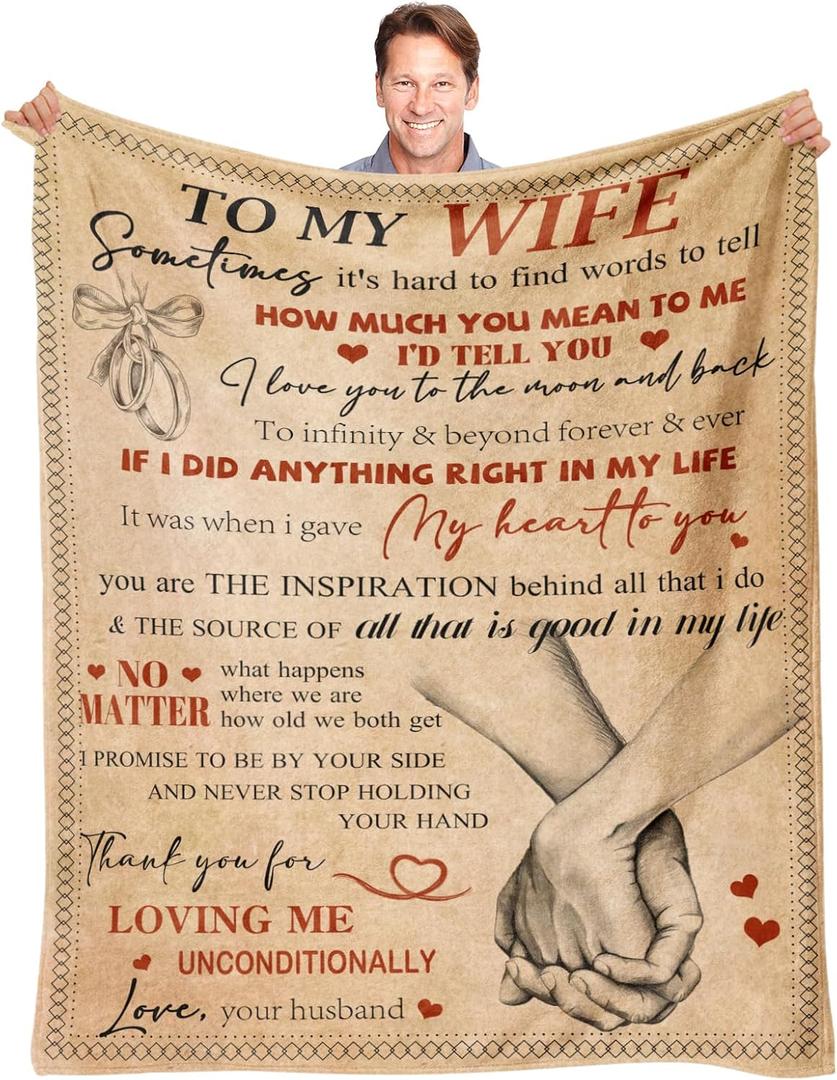 TO MY WIFE
Sometimes it's hard to find words to tell
HOW MUCH YOU MEAN TO ME
I'D TELL YOU
I love you to the moon and back
To infinity & beyond forever & ever
IF I DID ANYTHING RIGHT IN MY LIFE
It was when i gave My heart to you
you are THE INSPIRATION behind all that i do
& THE SOURCE OF all that is good in my life
NO MATTER
what happens
where we are
how old we both get
I PROMISE TO BE BY YOUR SIDE
AND NEVER STOP HOLDING
YOUR HAND
Thank you for
LOVING ME
UNCONDITIONALLY
Love, your husband